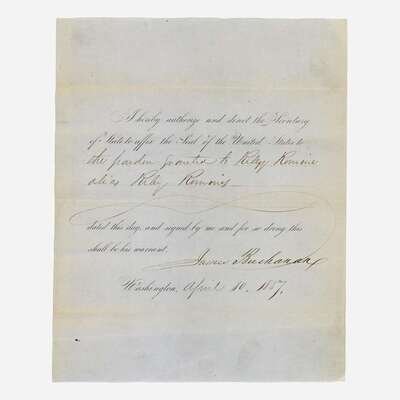 I hereby authorize and direct the Secretary
of State to affix the Seal of the United States to
the pardon granted to Riley Romine
alias Riley Romines
dated this day, and signed by me and for so doing this
shall be his warrant.
James Buchanan
Washington, April 10, 1857.